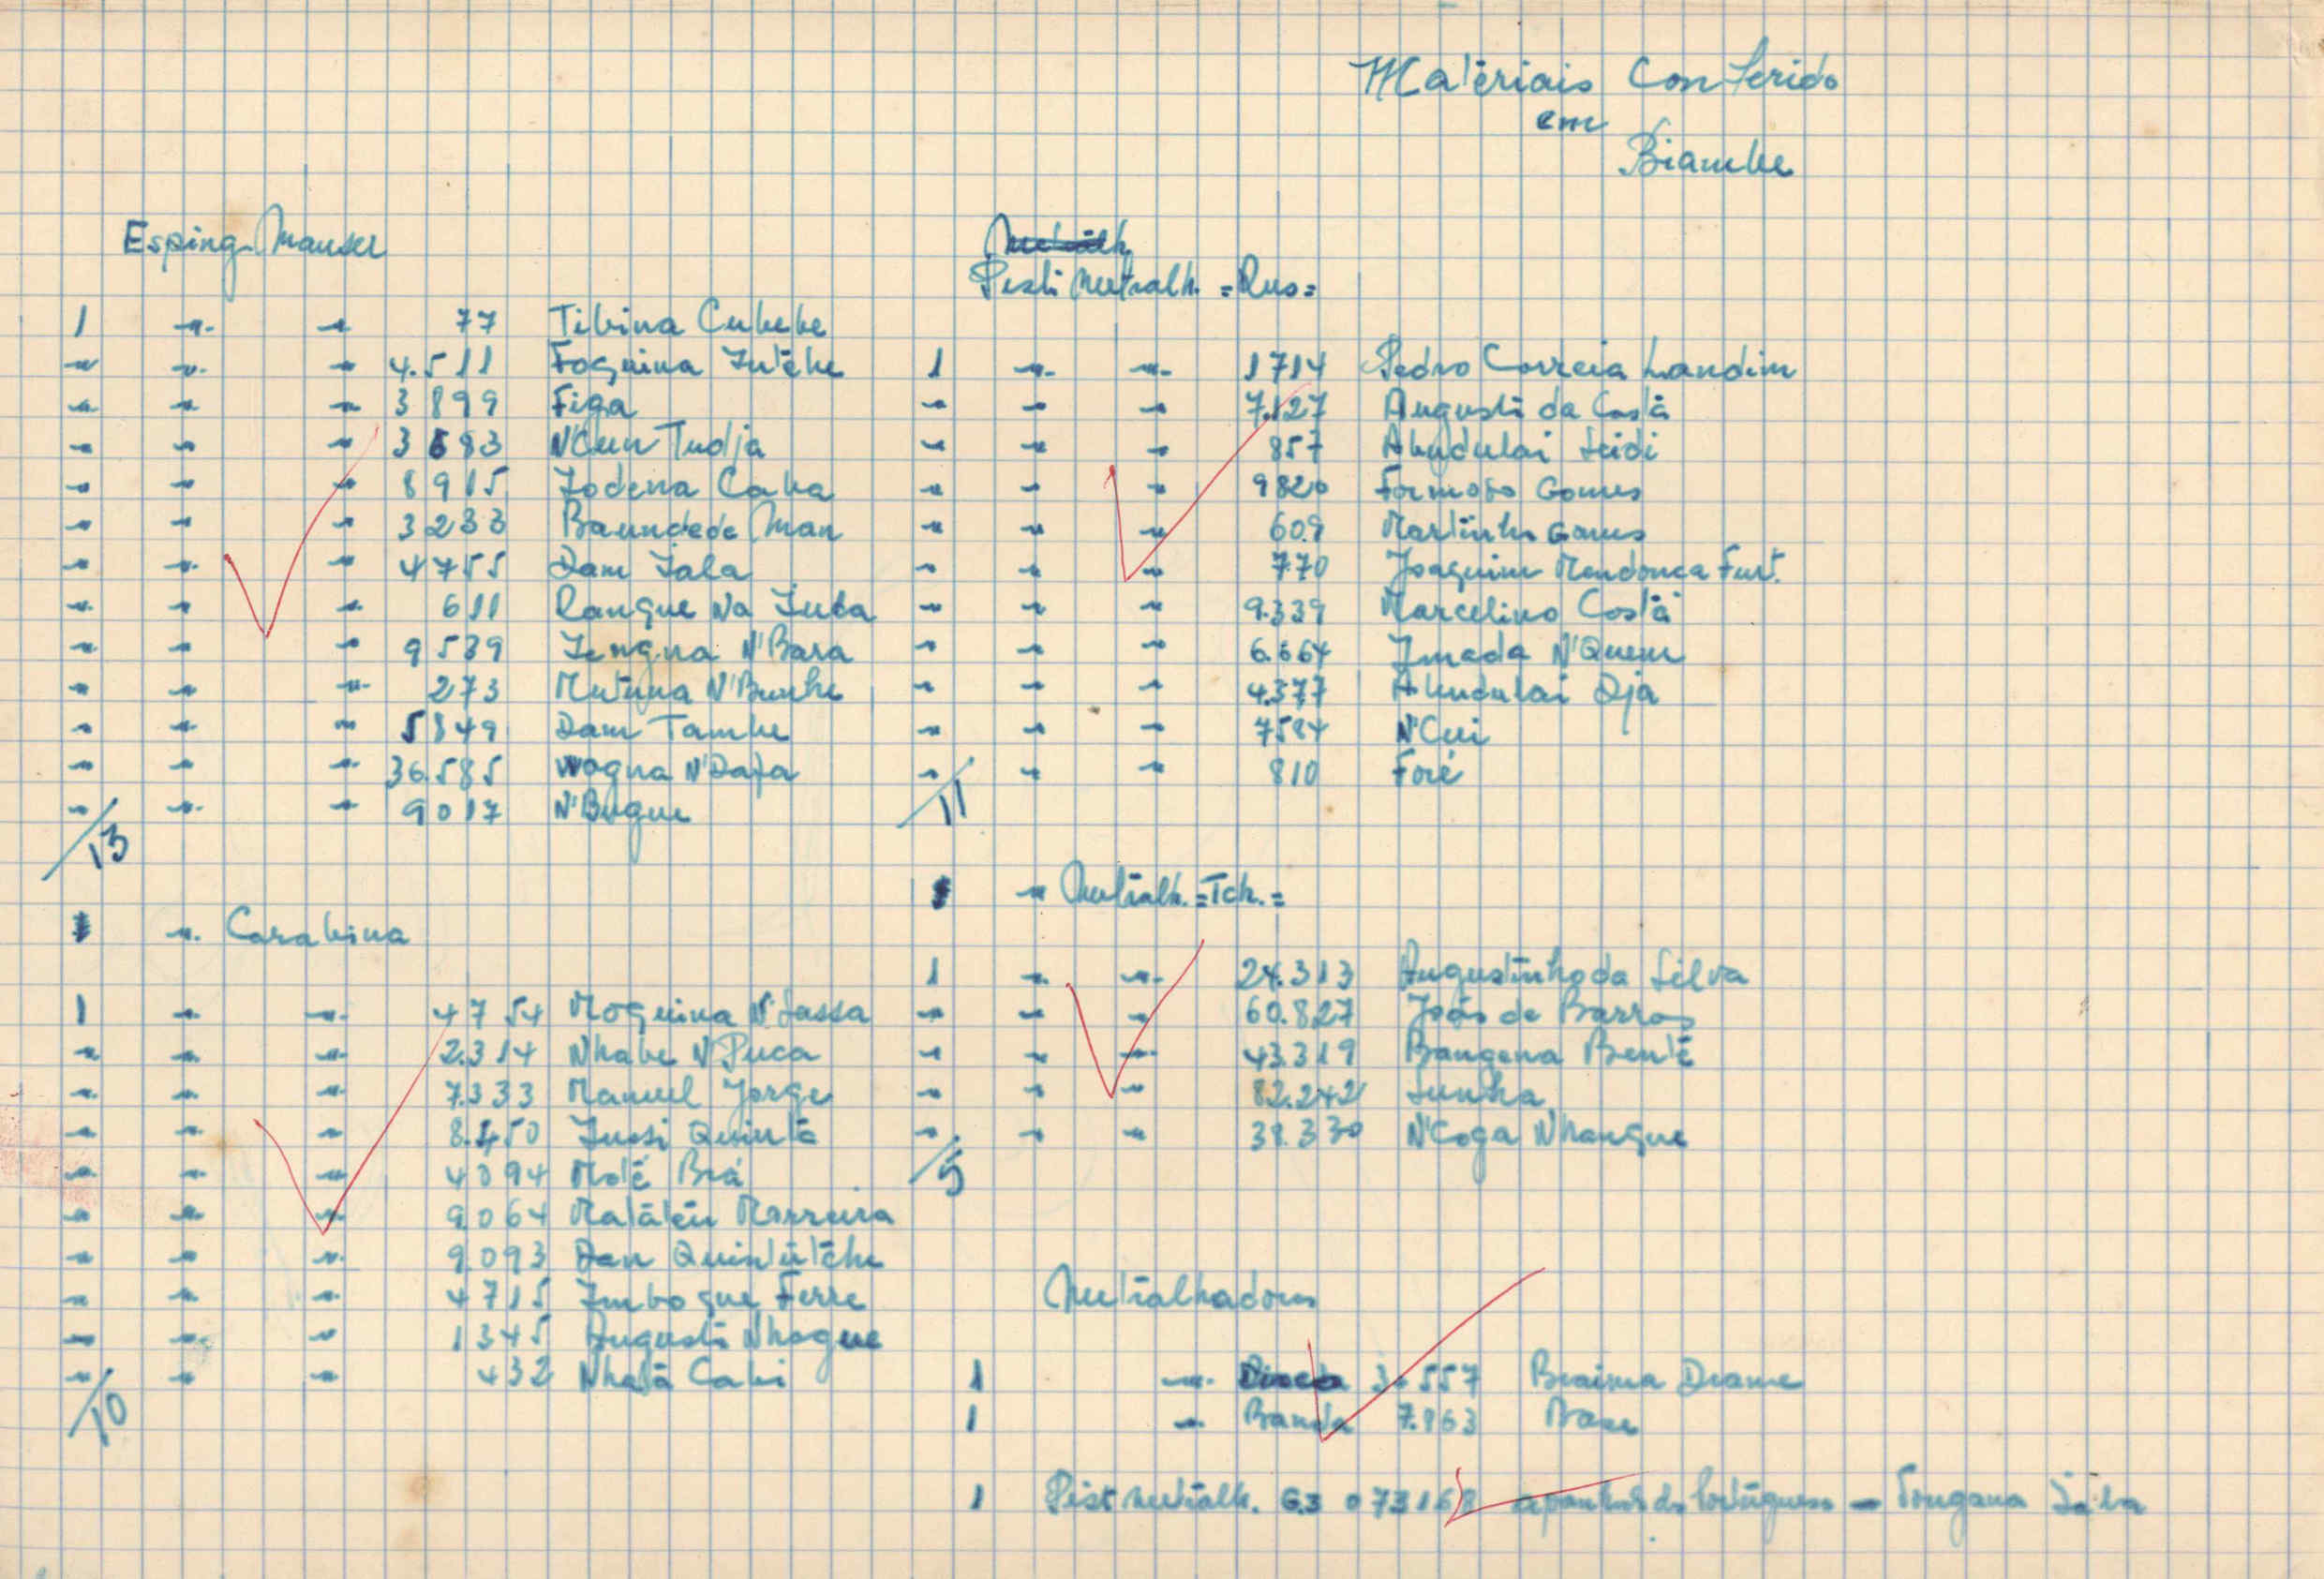 Matèriais Conferido
em
Biambe
Esping. Mauser
1 " " 77 Tibina Cubebe
" " " 4.511 Foguina
" " " 3899 Figa
" " " 3683 N'Cun Tudja
" " " 8915 Caba
" " " 3233 Baundede Man
" " " 4755 Dam Iala
" " " 611 Rangue Na
" " " 9539 N'Bara
" " " 273 N'Bunhe
" " " 5849 Dam Tambe
" " " 36.585 Wagna N'Dafa
" " " 9017 N'Bugue
13
" Carabina
1 " " 4754 Moguina N'
" " " 2.314 Nhabe N'Puca
" " " 7.333 Manuel Jorge
" " " 8.450 Quinta
" " " 4094 Moté Brá
" " " 9.064
" " " 9.093 Dan
" " " 4715 Imbogue Ferre
" " " 1345 Augusto Nhague
" " " 432 Nhatà Cabi
10
Pist. Metralh. =Rus=
1 " " 1714 Pedro Correia Landim
" " " 7.127 Augusto da Costa
" " " 857 Abudulai Seidi
" " " 9820 Formoso Gomes
" " " 609 Martinho Gomes
" " " 770 Joaquim Mendonca Furt.
" " " 9.339 Marcelino Costa
" " " 6.664 Imada N'Quem
" " " 4.377 Abudulai Dja
" " " 7584 N'Cui
" " " 810 Foré
11
" Metralh. =Tch.=
1 " " 24.313 Augustinho da Silva
" " " 60.827 João de Barros
" " " 43.319 Bangena Benté
" " " 82.242 Sunha
" " " 38.330 N'Coga Nhangue
5
Metralhadoras
1 " 557 Braima Drame
1 " Banda 7.963 Base
1 Pist metralh. G.3 apanhado Portugueses - Fongana